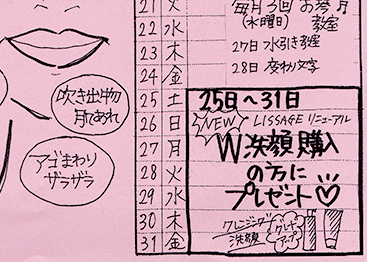 吹き出物
肌あれ
アゴまわり
ザラザラ
21 火
22 水
23 木
24 金
25 土
26 日
27 月
28 火
29 水
30 木
31 金
毎月3回
(水曜日) 教室
27日 水引き教室
28日 変わり文字
25日〜31日
NEW LISSAGE リニューアル
W洗顔購入
の方に
プレゼント♡
クレンジング
洗顔
グレード
アップ